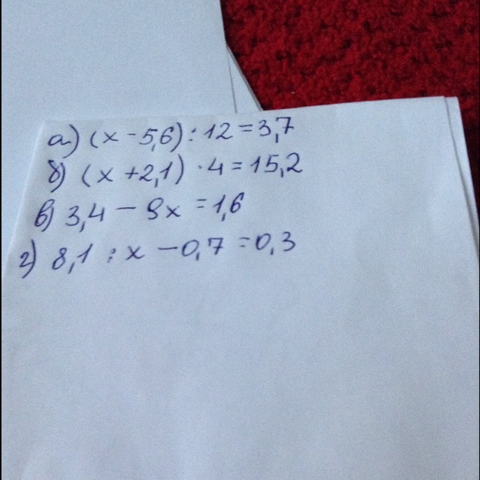 а) (x - 5,6) : 12 = 3,7
б) (x + 2,1) · 4 = 15,2
в) 3,4 - 9x = 1,6
г) 8,1 : x - 0,7 = 0,3